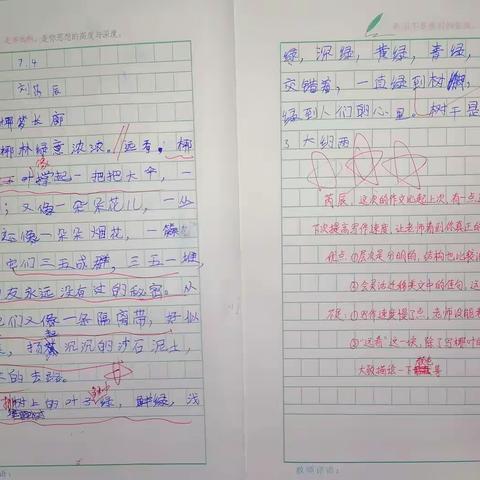 是你思想的高度与深度。
7.4
刘芮辰
椰梦长廊
椰林绿意浓浓。远看,椰
叶撑起一把把大伞,一
;又像一朵朵花儿,一丛
还像一朵朵烟花,一
它们三五成群,三五一堆,
友永远没有过的秘密。从
们又像一条隔离带,好似
沉沉的沙石泥土,
的去路。
树上的叶子绿,鲜绿,浅
绿,深绿,黄绿,青绿,
交错着,一直绿到树
绿到人们的心里。树干是
3 大约两
芮辰,这次的作文比起上次,有一点
下次提高写作速度,让老师看到你真正的
优点:①层次是分明的,结构也比较
②会灵活迁移美文中的佳句,这
不足:①写作速度慢了点,老师没能看
②“远看”这一块,除了写椰叶
大致描绘一下
教师评语: